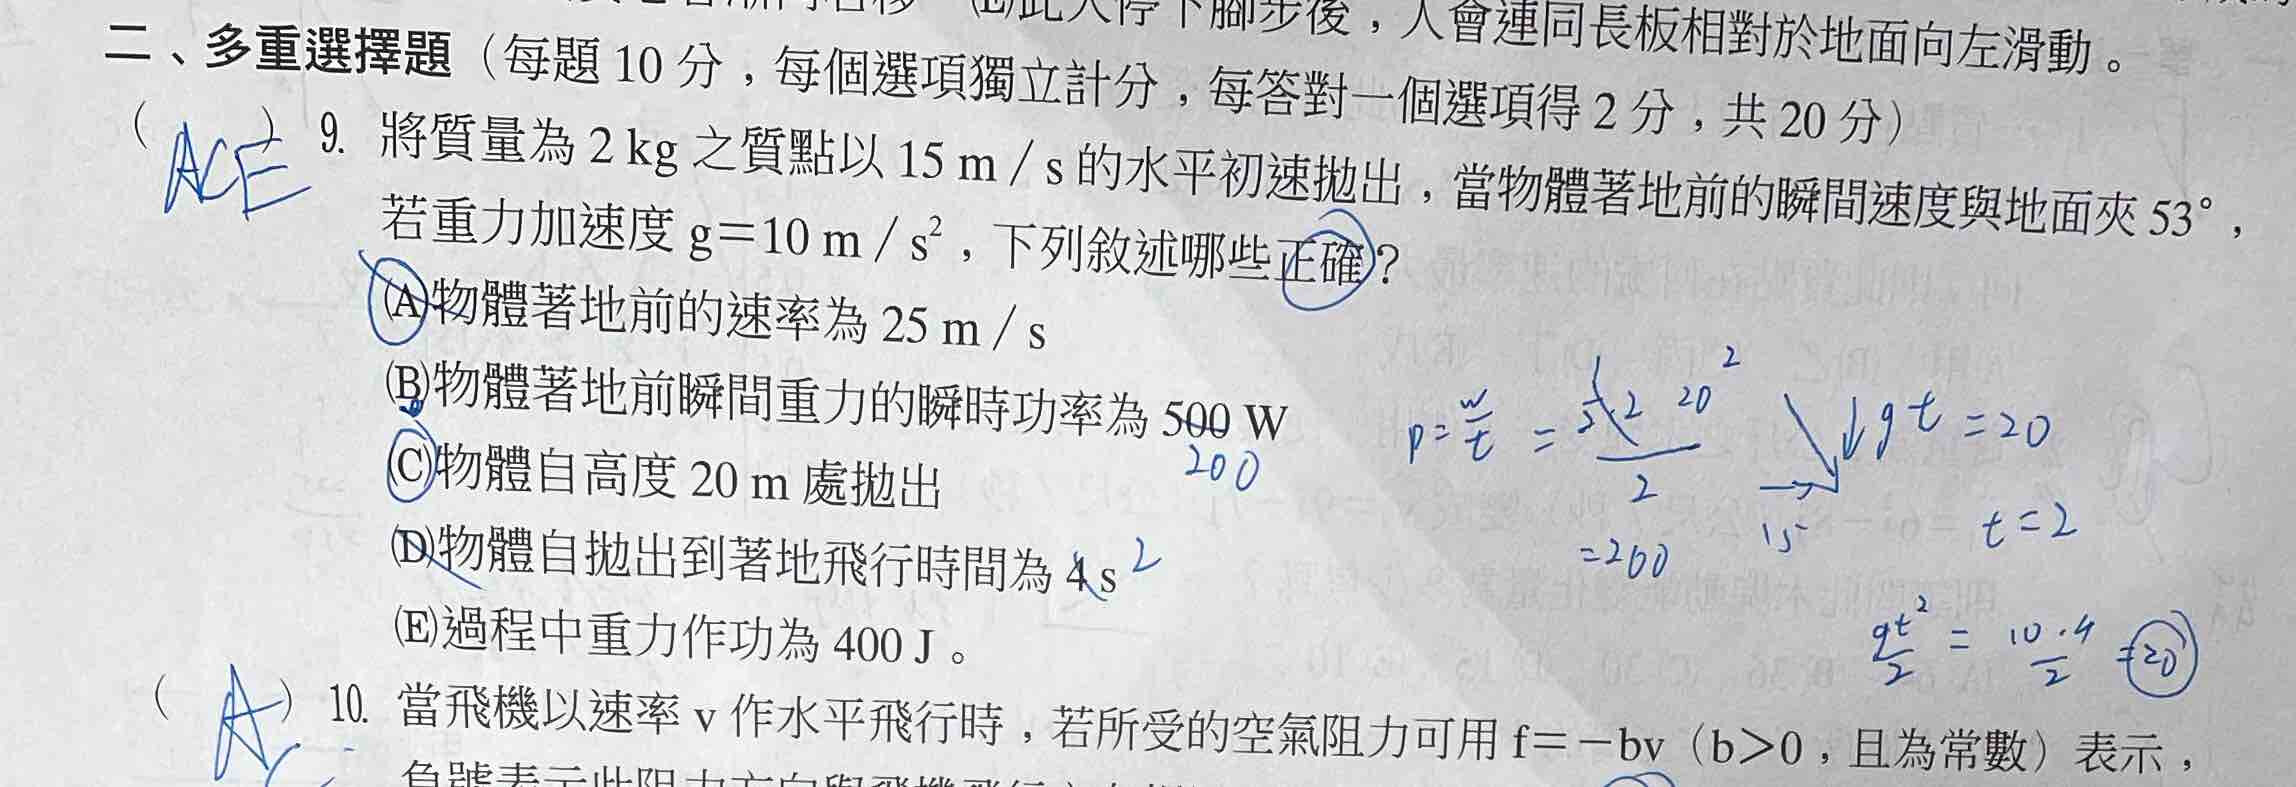 此人停下腳步後，人會連同長板相對於地面向左滑動。
二、多重選擇題（每題 10 分，每個選項獨立計分，每答對一個選項得 2 分，共 20 分）
( ACE ) 9. 將質量為 2 kg 之質點以 15 m／s 的水平初速拋出，當物體著地前的瞬間速度與地面夾 53°，
若重力加速度 g＝10 m／s²，下列敘述哪些正確？
(A)物體著地前的速率為 25 m／s
(B)物體著地前瞬間重力的瞬時功率為 500 W
200
(C)物體自高度 20 m 處拋出
(D)物體自拋出到著地飛行時間為 4 s 2
(E)過程中重力作功為 400 J。
P = w/t = ½ 2 20² / 2
= 200
gt = 20
15
t = 2
gt²/2 = 10·4/2 = 20
( A ) 10. 當飛機以速率 v 作水平飛行時，若所受的空氣阻力可用 f＝－bv（b＞0，且為常數）表示，